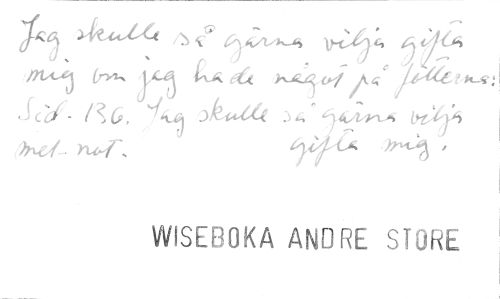 Jag skulle så gärna vilja gifta
mig om jag hade något på fötterna:
Sid. 136. Jag skulle så gärna vilja
met. not. gifta mig.
WISEBOKA ANDRE STORE